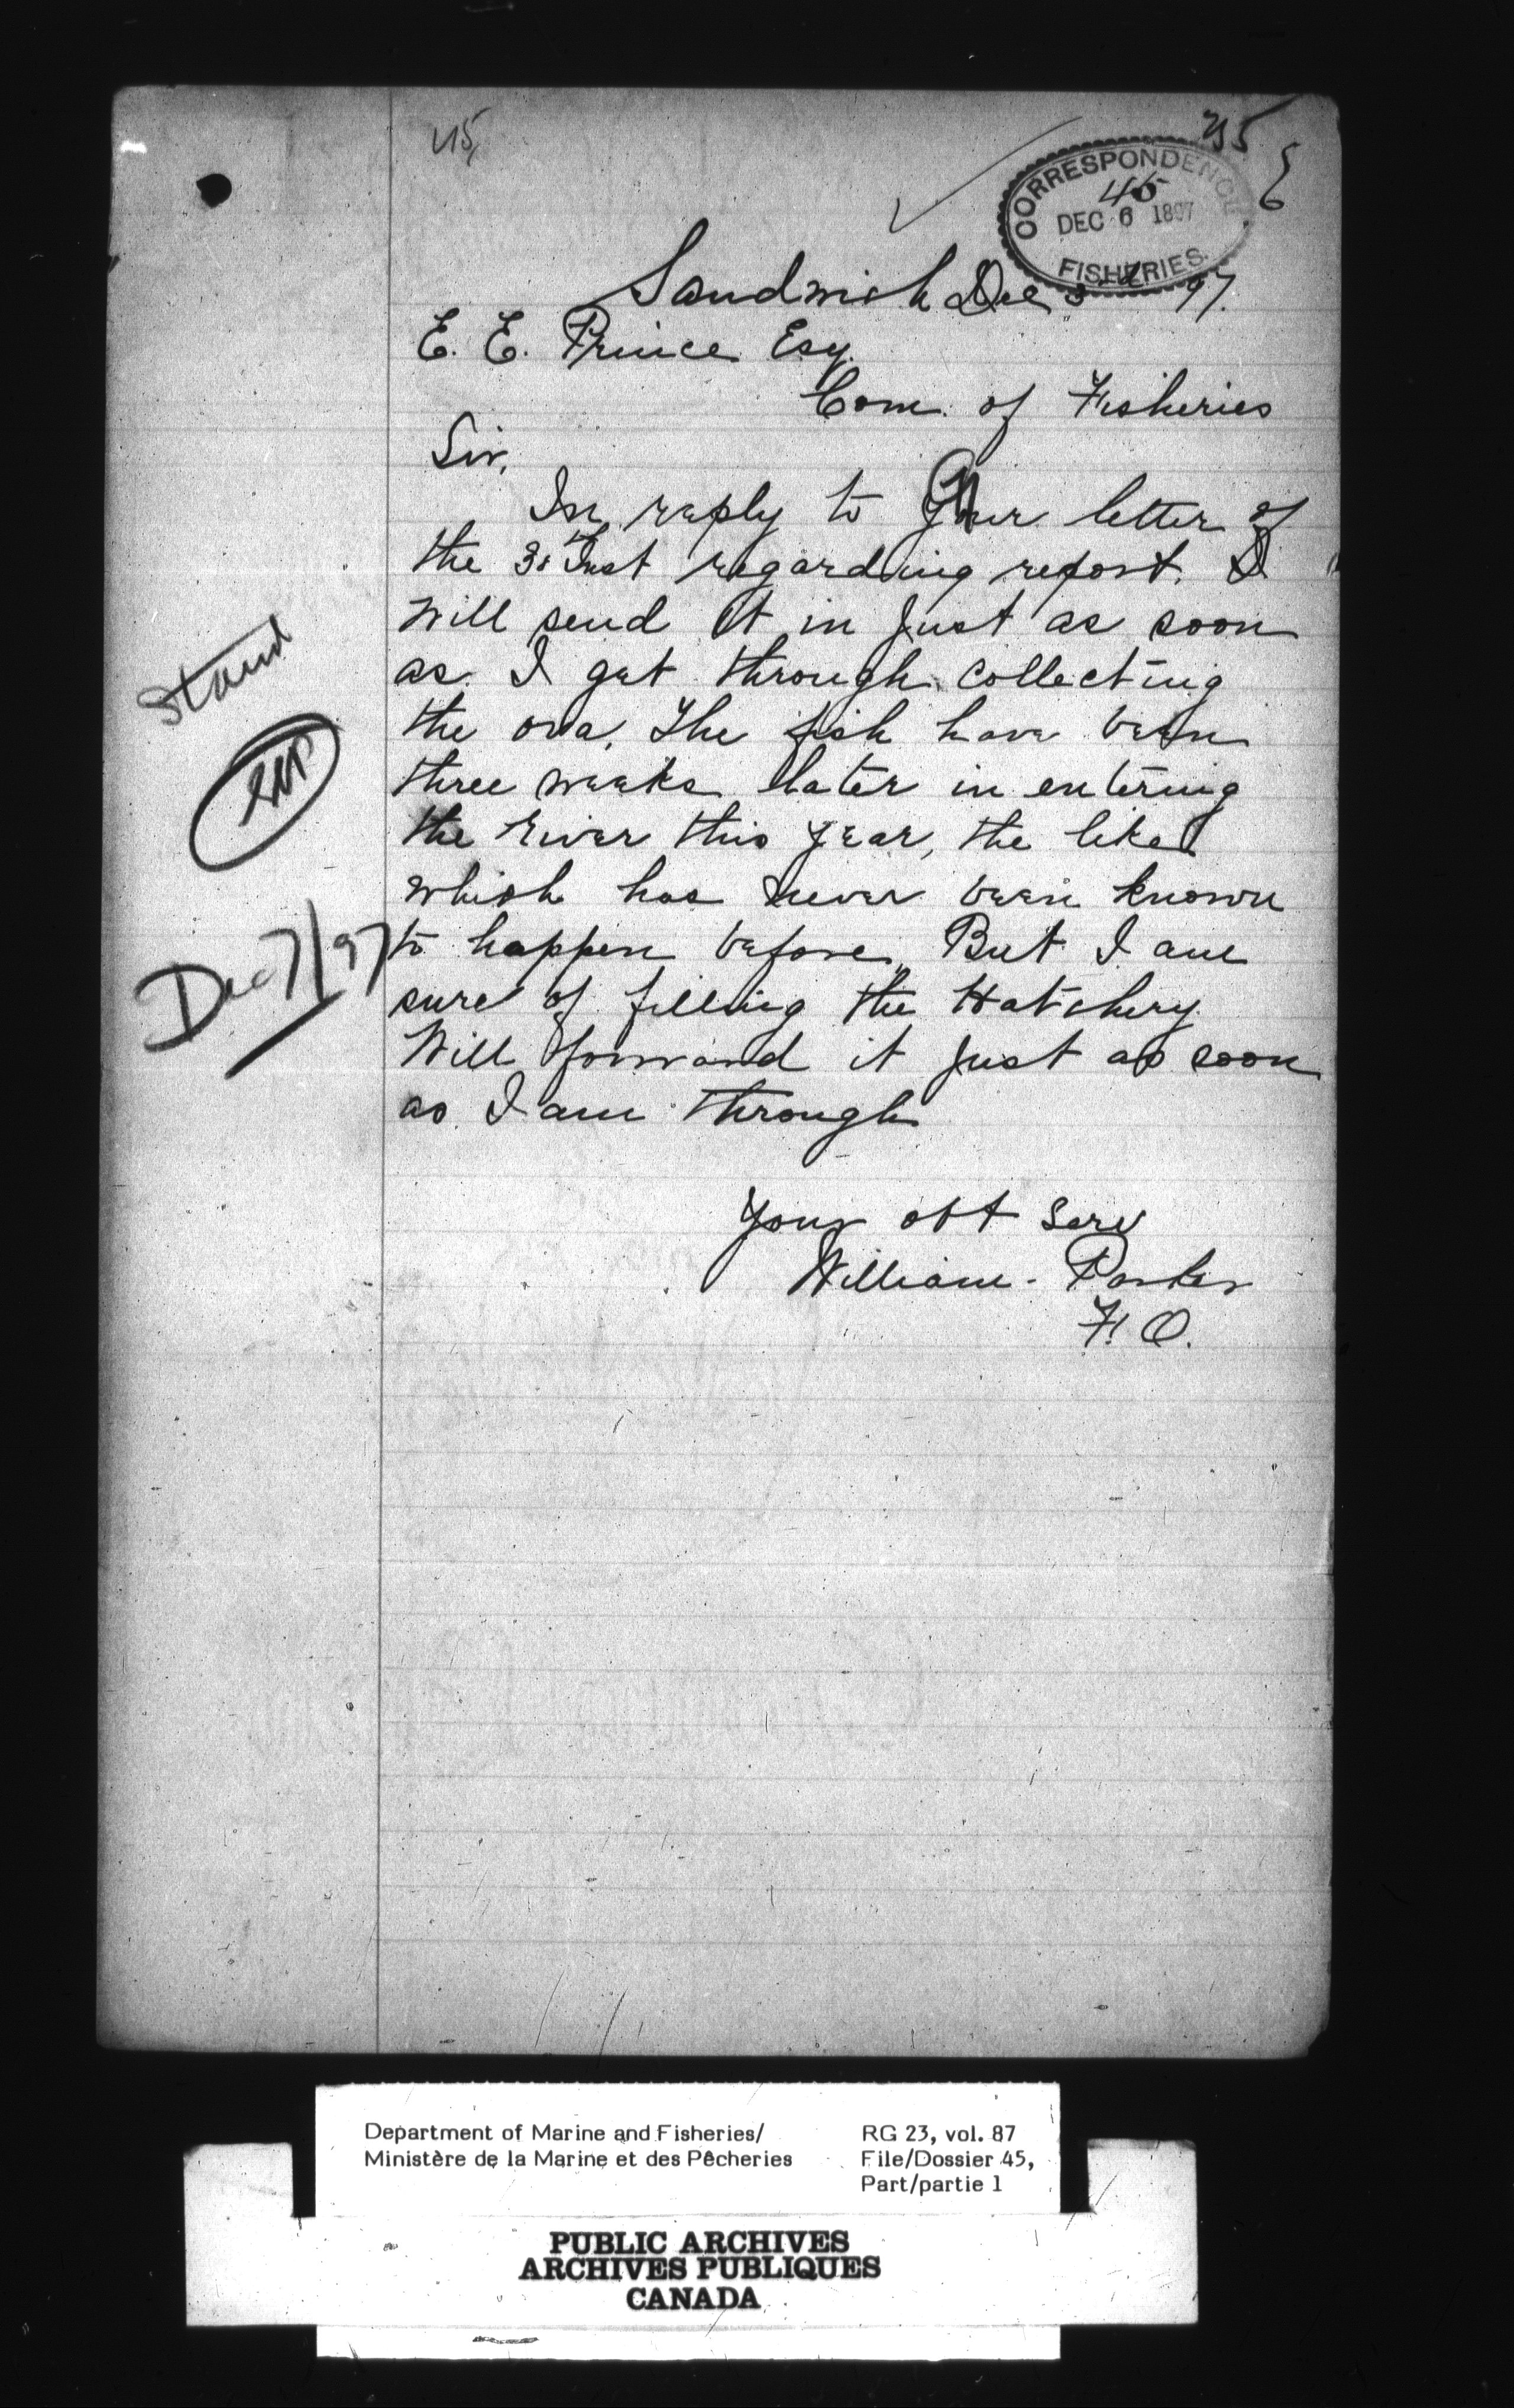 45
45
6
CORRESPONDENCE
45
DEC 6 1897
FISHERIES.
Sandwich Dec 3rd 97.
E. E. Prince Esq.
Com. of Fisheries
Sir,
In reply to your letter of
the Inst regarding report. I
will send it in just as soon
as I get through collecting
the ova. The fish have been
three weeks later in entering
the river this year, the like
which has never been known
to happen before. But I am
sure of filling the Hatchery.
Will forward it just as soon
as I am through
Your obt Serv
William Parker
F. O.
Stand
EEP
Dec 7/97
Department of Marine and Fisheries/
Ministère de la Marine et des Pêcheries
RG 23, vol. 87
File/Dossier 45,
Part/partie 1
PUBLIC ARCHIVES
ARCHIVES PUBLIQUES
CANADA